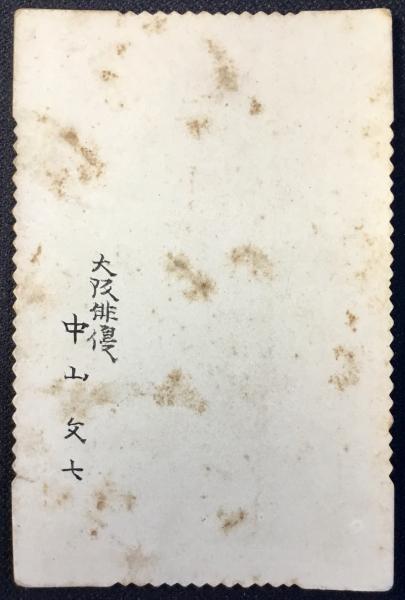 大阪俳優
中山文七